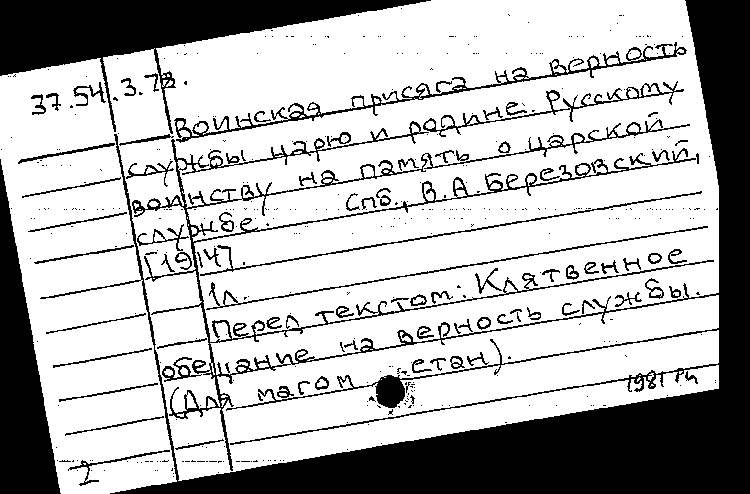 37.54.3.73.
Воинская присяга на верность
службы царю и родине. Русскому
воинству на память о царской
службе. Спб., В.А.Березовский,
[1914].
1л.
Перед текстом: Клятвенное
обещание на верность службы.
(Для магом етан).
1981
2